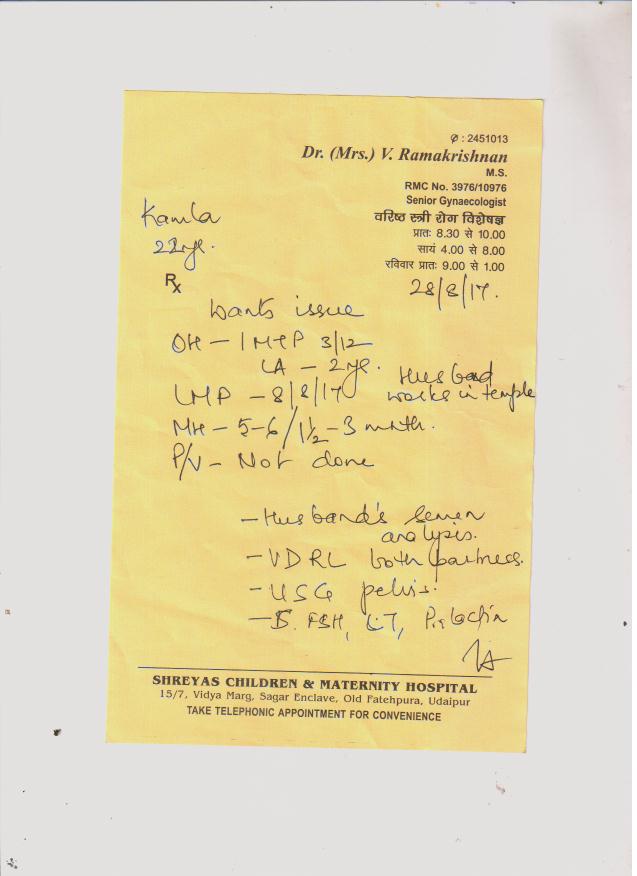 Ø : 2451013
Dr. (Mrs.) V. Ramakrishnan
M.S.
RMC No. 3976/10976
Senior Gynaecologist
वरिष्ठ स्त्री रोग विशेषज्ञ
प्रातः 8.30 से 10.00
सायं 4.00 से 8.00
रविवार प्रातः 9.00 से 1.00
28/8/17.
Kamla
22yr.
Rx
Wants issue
OH - 1 MTP 3/12
LA - 2 yr.
LMP - 8/8/17
Husband
works in temple
MH - 5-6/1½-3 month.
P/V - Not done
- Husband's semen
analysis.
- VDRL both partners.
- USG pelvis.
- S. FSH, LH, Prolactin
SHREYAS CHILDREN & MATERNITY HOSPITAL
15/7, Vidya Marg, Sagar Enclave, Old Fatehpura, Udaipur
TAKE TELEPHONIC APPOINTMENT FOR CONVENIENCE